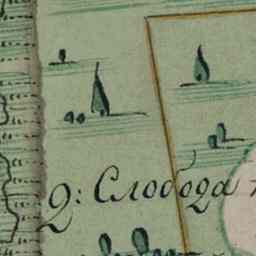 Q: Слобода